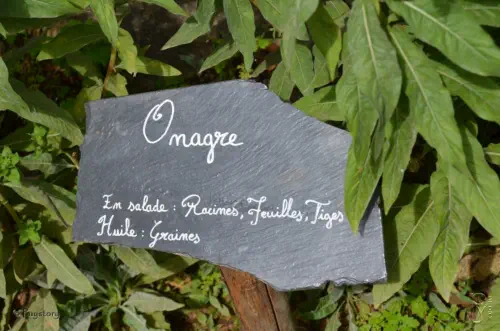 Onagre
En salade : Racines, Feuilles, Tiges
Huile : Graines